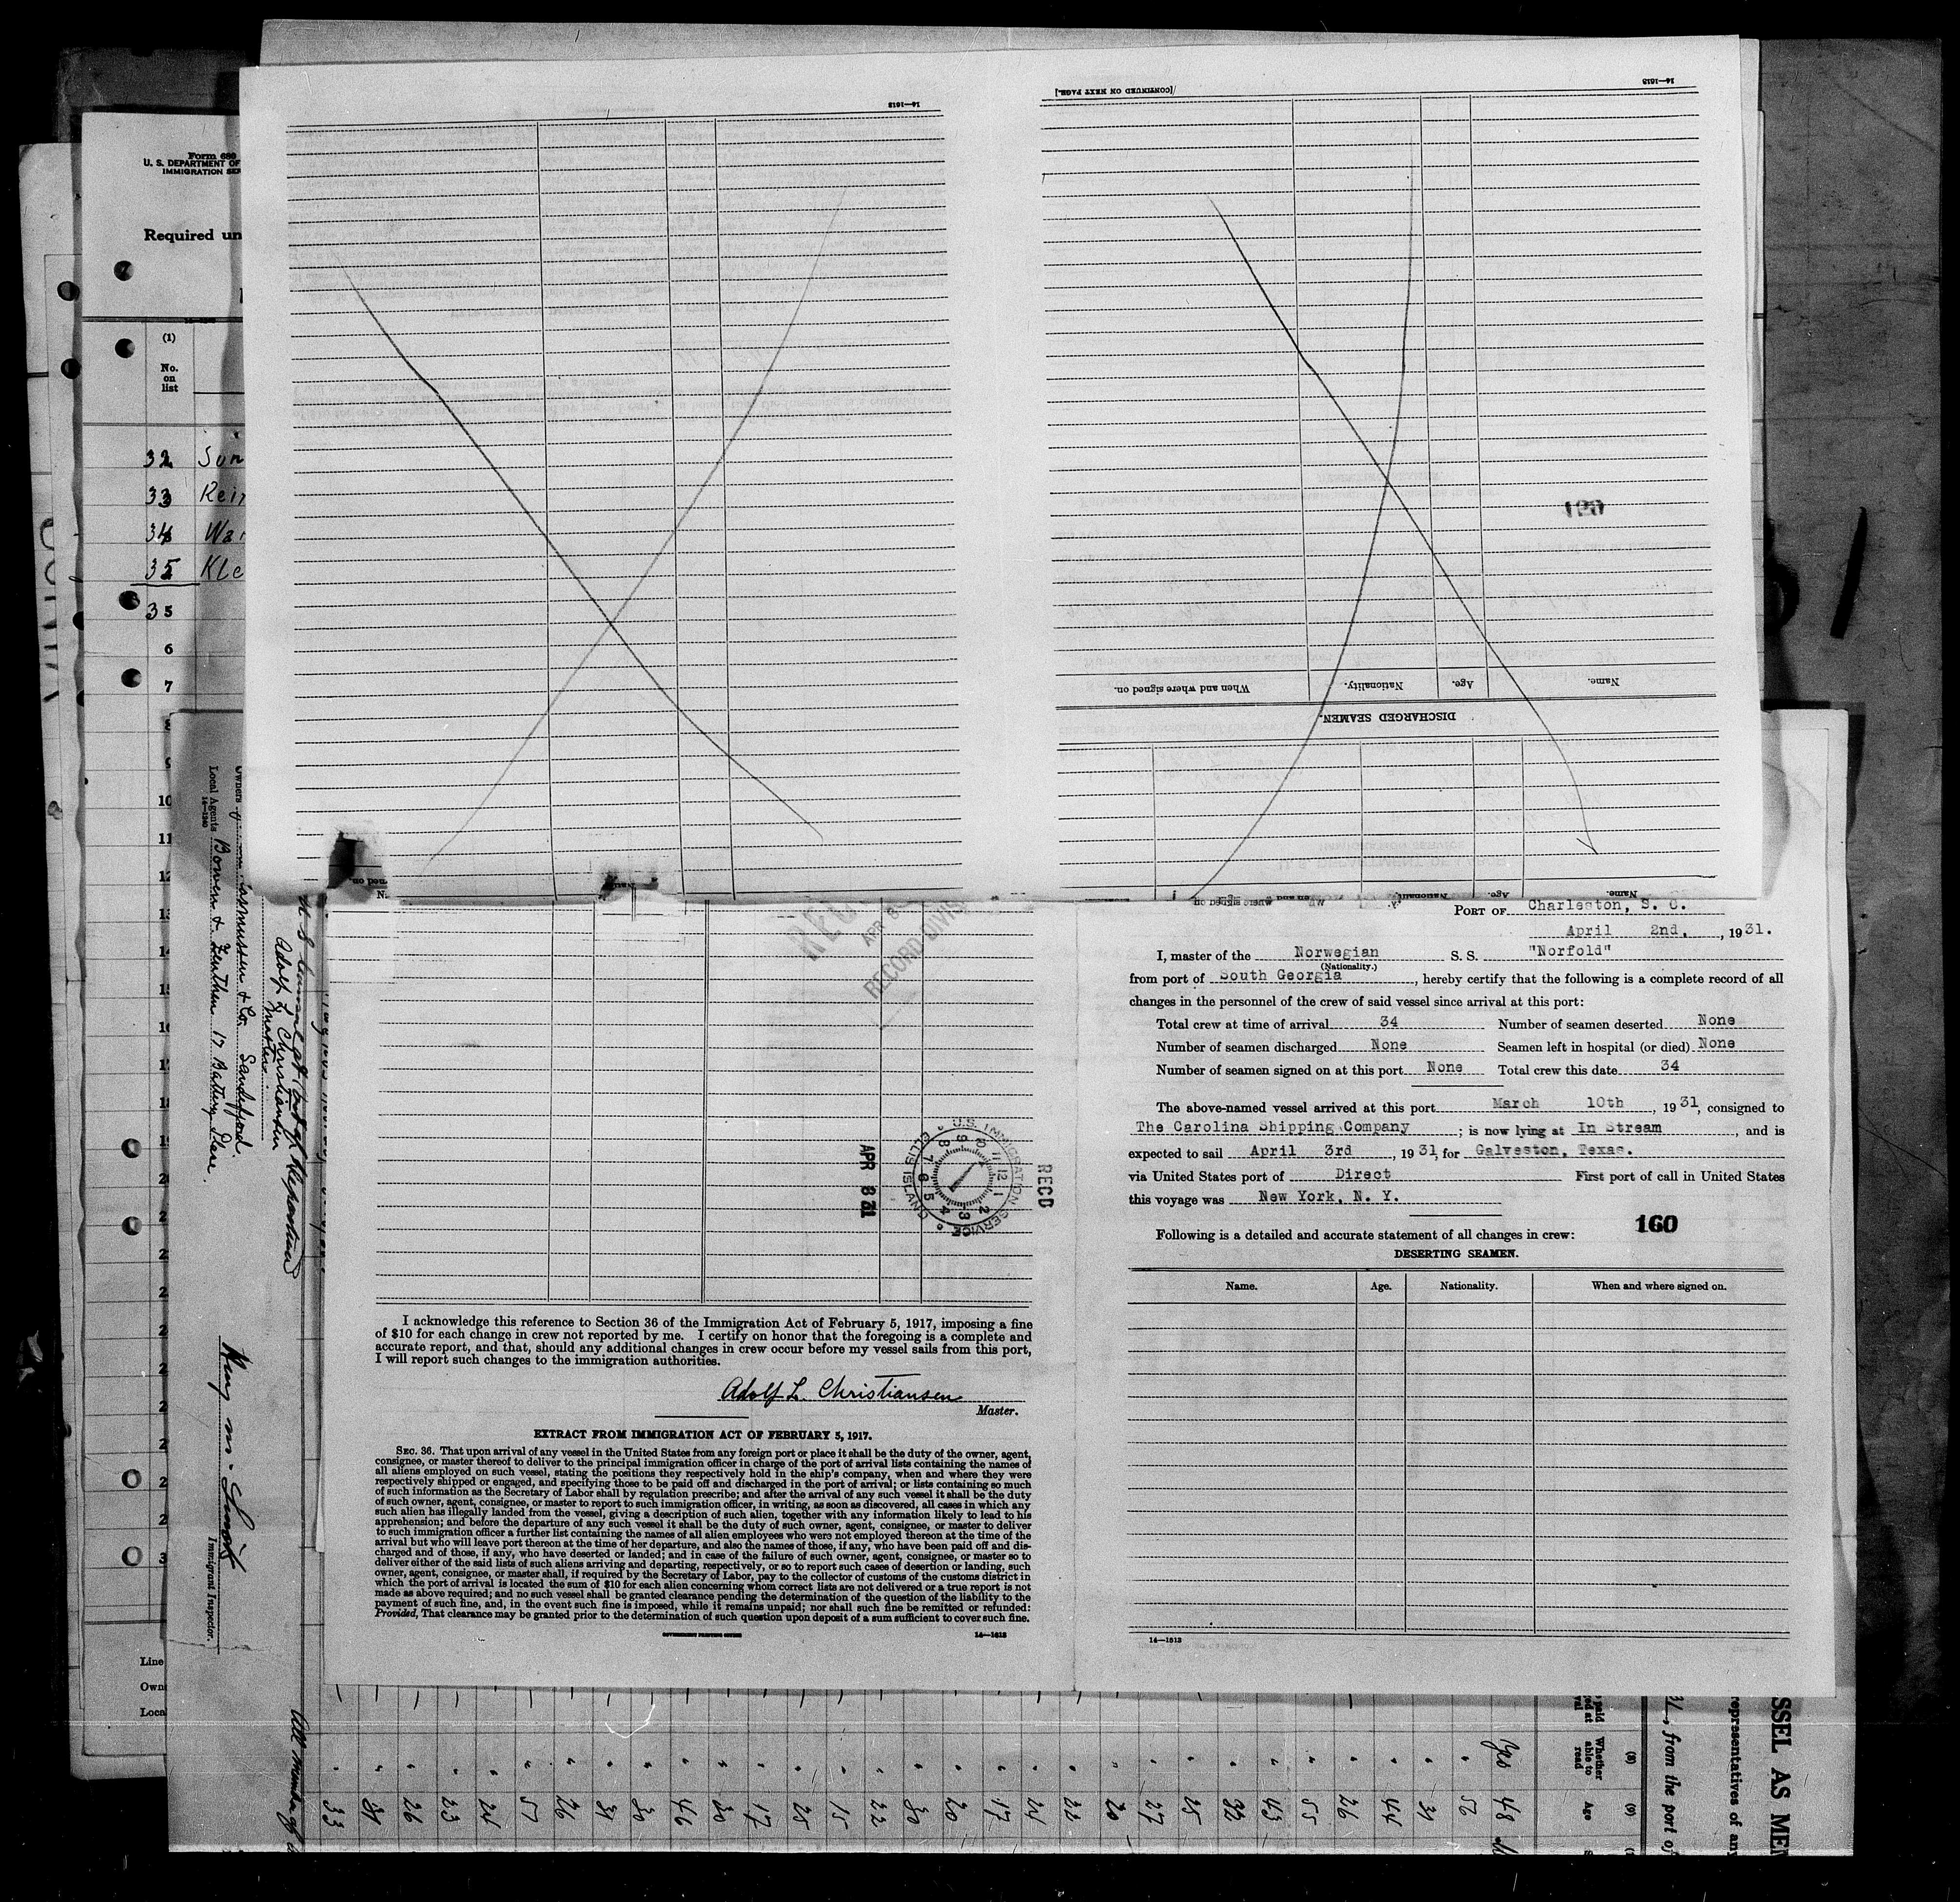 Form 680
U. S. DEPARTMENT OF
IMMIGRATION SER
Required un
(1)
No.
on
list
32 Sun
33 Rein
34 War
35 Kle
35
6
7
8
10
11
12
13
14
15
16
17
18
19
14—1613
[CONTINUED ON NEXT PAGE.]
14—1613
120
When and where signed on.
Nationality.
Age.
Name.
DISCHARGED SEAMEN.
Name.
Age.
Nationality.
When and where signed on.
PORT OF Charleston, S. C.
April 2nd. , 1931.
I, master of the Norwegian S. S. "Norfold"
(Nationality.)
from port of South Georgia , hereby certify that the following is a complete record of all
changes in the personnel of the crew of said vessel since arrival at this port:
Total crew at time of arrival 34 Number of seamen deserted None
Number of seamen discharged None Seamen left in hospital (or died) None
Number of seamen signed on at this port None Total crew this date 34
The above-named vessel arrived at this port March 10th , 1931, consigned to
The Carolina Shipping Company ; is now lying at In Stream , and is
expected to sail April 3rd , 1931, for Galveston, Texas.
via United States port of Direct First port of call in United States
this voyage was New York, N. Y.
160
Following is a detailed and accurate statement of all changes in crew:
DESERTING SEAMEN.
Name. Age. Nationality. When and where signed on.
14—1613
REC
APR 8
RECORD DIVIS
U.S. IMMIGRATION SERVICE
ELLIS ISLAND
RECD
APR 8 31
I acknowledge this reference to Section 36 of the Immigration Act of February 5, 1917, imposing a fine
of $10 for each change in crew not reported by me. I certify on honor that the foregoing is a complete and
accurate report, and that, should any additional changes in crew occur before my vessel sails from this port,
I will report such changes to the immigration authorities.
Adolf L. Christiansen
Master.
EXTRACT FROM IMMIGRATION ACT OF FEBRUARY 5, 1917.
SEC. 36. That upon arrival of any vessel in the United States from any foreign port or place it shall be the duty of the owner, agent,
consignee, or master thereof to deliver to the principal immigration officer in charge of the port of arrival lists containing the names of
all aliens employed on such vessel, stating the positions they respectively hold in the ship's company, when and where they were
respectively shipped or engaged, and specifying those to be paid off and discharged in the port of arrival; or lists containing so much
of such information as the Secretary of Labor shall by regulation prescribe; and after the arrival of any such vessel it shall be the duty
of such owner, agent, consignee, or master to report to such immigration officer, in writing, as soon as discovered, all cases in which any
such alien has illegally landed from the vessel, giving a description of such alien, together with any information likely to lead to his
apprehension; and before the departure of any such vessel it shall be the duty of such owner, agent, consignee, or master to deliver
to such immigration officer a further list containing the names of all alien employees who were not employed thereon at the time of the
arrival but who will leave port thereon at the time of her departure, and also the names of those, if any, who have been paid off and dis-
charged and of those, if any, who have deserted or landed; and in case of the failure of such owner, agent, consignee, or master so to
deliver either of the said lists of such aliens arriving and departing, respectively, or so to report such cases of desertion or landing, such
owner, agent, consignee, or master shall, if required by the Secretary of Labor, pay to the collector of customs of the customs district in
which the port of arrival is located the sum of $10 for each alien concerning whom correct lists are not delivered or a true report is not
made as above required; and no such vessel shall be granted clearance pending the determination of the question of the liability to the
payment of such fine, and, in the event such fine is imposed, while it remains unpaid; nor shall such fine be remitted or refunded:
Provided, That clearance may be granted prior to the determination of such question upon deposit of a sum sufficient to cover such fine.
GOVERNMENT PRINTING OFFICE
14—1613
Adolf L. Christiansen
Master
Owners
Rasmussen & Co. Sandefjord.
Local Agents Bowen & 17 Battery Place.
14—1240
Immigrant Inspector.
Line
Own
Loca
All members of
33
26
23
24
51
26
46
30
17
25
15
22
30
20
17
24
22
20
27
25
32
43
55
26
44
52
48
Yes
(8)
Whether
able to
read
(9)
Age
, from the port of
representatives of any
SSEL AS MEM